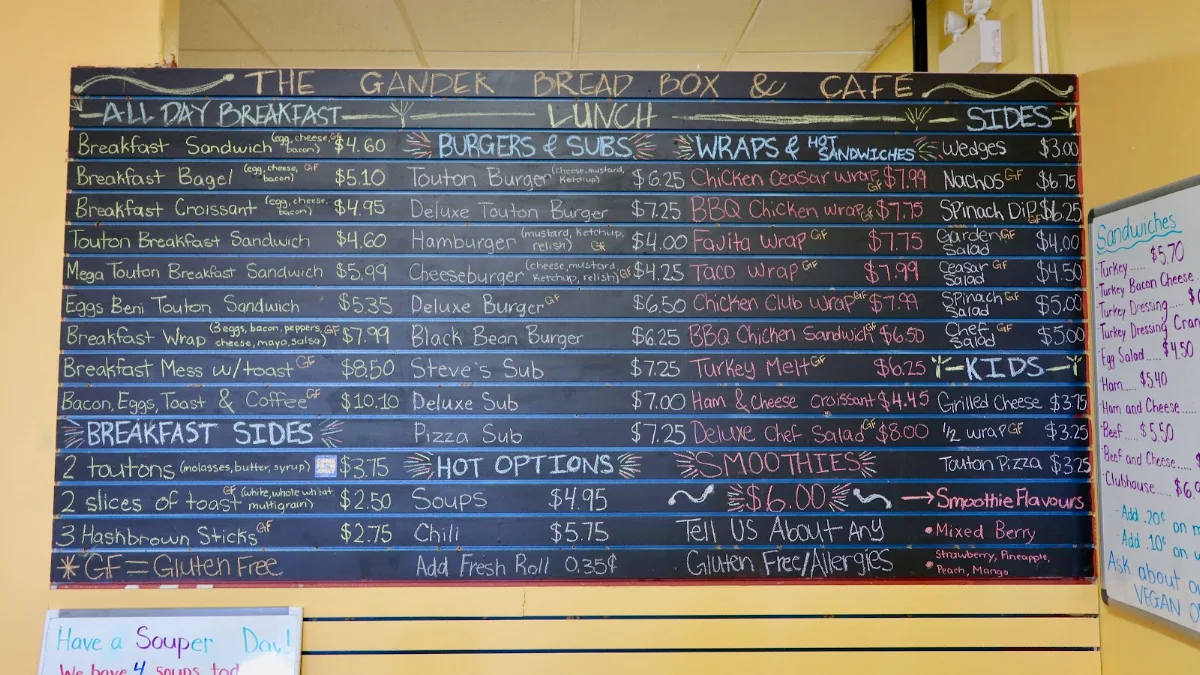 THE GANDER BREAD BOX & CAFÉ
ALL DAY BREAKFAST
Breakfast Sandwich (egg, cheese, bacon) GF $4.60
Breakfast Bagel (egg, cheese, bacon) GF $5.10
Breakfast Croissant (egg, cheese, bacon) $4.95
Touton Breakfast Sandwich $4.60
Mega Touton Breakfast Sandwich $5.99
Eggs Beni Touton Sandwich $5.35
Breakfast Wrap (3 eggs, bacon, peppers, cheese, mayo, salsa) GF $7.99
Breakfast Mess w/toast GF $8.50
Bacon, Eggs, Toast & Coffee GF $10.10
BREAKFAST SIDES
2 toutons (molasses, butter, syrup) $3.75
2 slices of toast GF (white, whole wheat multigrain) $2.50
3 Hashbrown Sticks GF $2.75
* GF = Gluten Free
LUNCH
BURGERS & SUBS
Touton Burger (cheese, mustard, ketchup) $6.25
Deluxe Touton Burger $7.25
Hamburger (mustard, ketchup, relish) GF $4.00
Cheeseburger (cheese, mustard, ketchup, relish) GF $4.25
Deluxe Burger GF $6.50
Black Bean Burger $6.25
Steve's Sub $7.25
Deluxe Sub $7.00
Pizza Sub $7.25
HOT OPTIONS
Soups $4.95
Chili $5.75
Add Fresh Roll 0.35¢
WRAPS & HOT SANDWICHES
Chicken Ceasar Wrap GF $7.99
BBQ Chicken Wrap GF $7.75
Fajita Wrap GF $7.75
Taco Wrap GF $7.99
Chicken Club Wrap GF $7.99
BBQ Chicken Sandwich GF $6.50
Turkey Melt GF $6.25
Ham & Cheese Croissant $4.45
Deluxe Chef Salad GF $8.00
SMOOTHIES
$6.00
Tell Us About Any
Gluten Free/Allergies
SIDES
Wedges $3.00
Nachos GF $6.75
Spinach Dip GF $6.25
Garden Salad GF $4.00
Ceasar Salad GF $4.50
Spinach Salad GF $5.00
Chef Salad GF $5.00
KIDS
Grilled Cheese $3.75
1/2 Wrap GF $3.25
Touton Pizza $3.25
→ Smoothie Flavours
• Mixed Berry
• Strawberry, Pineapple, Peach, Mango
Sandwiches
Turkey..... $5.70
Turkey Bacon Cheese
Turkey Dressing.....
Turkey Dressing Cran
Egg Salad..... $4.50
Ham..... $5.40
Ham and Cheese.....
Beef..... $5.50
Beef and Cheese.....
Clubhouse..... $6.9
- Add .20¢ on
- Add .10¢ on
Ask about
VEGAN
Have a Souper Day!
We have 4 soups tod